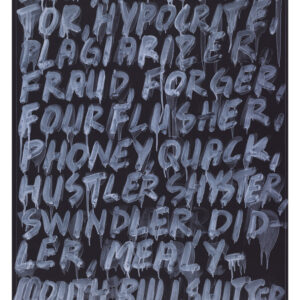 TOR, HYPOCRITE,
PLAGIARIZER,
FRAUD, FORGER,
FOURFLUSHER,
PHONEY, QUACK,
HUSTLER, SHYSTER,
SWINDLER, DID-
LER, MEALY-
MOUTH, BULLSHITTER